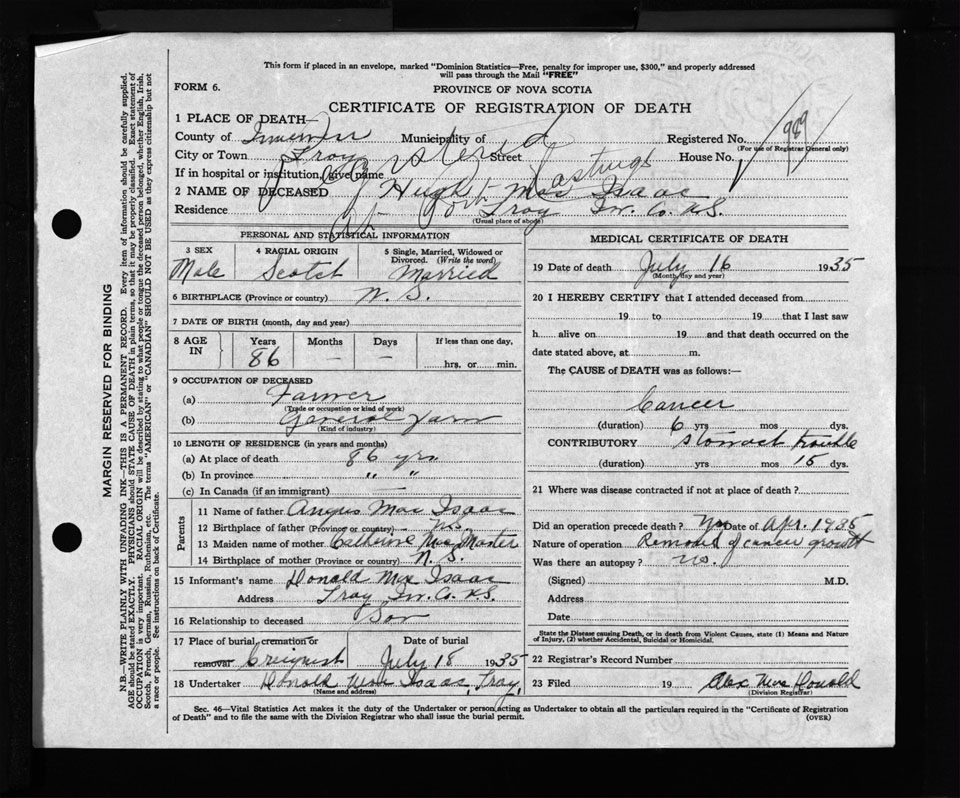 This form if placed in an envelope, marked "Dominion Statistics—Free, penalty for improper use, $300," and properly addressed
will pass through the Mail "FREE"
FORM 6.
PROVINCE OF NOVA SCOTIA
CERTIFICATE OF REGISTRATION OF DEATH
1 PLACE OF DEATH—
County of Municipality of Registered No. 989
(For use of Registrar General only)
City or Town Troy Street House No.
If in hospital or institution, give name
Registered at Port Hastings
2 NAME OF DECEASED Hugh Mac Isaac
Residence Troy Inv. Co. N.S.
(Usual place of abode)
PERSONAL AND STATISTICAL INFORMATION
3 SEX Male
4 RACIAL ORIGIN Scotch
5 Single, Married, Widowed or Divorced. (Write the word) Married
6 BIRTHPLACE (Province or country) N. S.
7 DATE OF BIRTH (month, day and year)
8 AGE IN Years 86 Months — Days — If less than one day, hrs. or min.
9 OCCUPATION OF DECEASED
(a) Farmer
(Trade or occupation or kind of work)
(b) General Farm
(Kind of industry)
10 LENGTH OF RESIDENCE (in years and months)
(a) At place of death 86 yrs
(b) In province " "
(c) In Canada (if an immigrant) —
Parents
11 Name of father Angus Mac Isaac
12 Birthplace of father (Province or country) N.S.
13 Maiden name of mother Catherine MacMaster
14 Birthplace of mother (Province or country) N. S.
15 Informant's name Donald Mac Isaac
Address Troy Inv. Co. N.S.
16 Relationship to deceased Son
17 Place of burial, cremation or removal Creignish Date of burial July 18 1935
18 Undertaker Donald Mac Isaac, Troy,
(Name and address)
MEDICAL CERTIFICATE OF DEATH
19 Date of death July 16 1935
(Month, day and year)
20 I HEREBY CERTIFY that I attended deceased from
19 to 19 that I last saw
h alive on 19 and that death occurred on the
date stated above, at m.
The CAUSE of DEATH was as follows:—
Cancer
(duration) 6 yrs mos dys.
CONTRIBUTORY stomach trouble
(duration) yrs mos 15 dys.
21 Where was disease contracted if not at place of death?
Did an operation precede death? Yes Date of Apr. 1935
Nature of operation Removal of cancer growth
Was there an autopsy? no.
(Signed) M.D.
Address
Date
State the Disease causing Death, or in death from Violent Causes, state (1) Means and
Nature of Injury, (2) whether Accidental, Suicidal or Homicidal.
22 Registrar's Record Number
23 Filed 19 Alex Mac Donald
(Division Registrar)
Sec. 46—Vital Statistics Act makes it the duty of the Undertaker or person acting as Undertaker to obtain all the particulars required in the "Certificate of Registration
of Death" and to file the same with the Division Registrar who shall issue the burial permit.
(OVER)
MARGIN RESERVED FOR BINDING
N.B.—WRITE PLAINLY WITH UNFADING INK—THIS IS A PERMANENT RECORD. Every item of information should be carefully supplied.
AGE should be stated EXACTLY. PHYSICIANS should STATE CAUSE OF DEATH in plain terms, so that it may be properly classified. Exact statement of
OCCUPATION is very important. RACIAL ORIGIN will be described by stating to what people or tongue the deceased person belonged, whether English, Irish,
Scotch, French, German, Russian, Ruthenian, etc. The terms "AMERICAN" or "CANADIAN" SHOULD NOT BE USED as they express citizenship but not
a race or people. See instructions on back of Certificate.